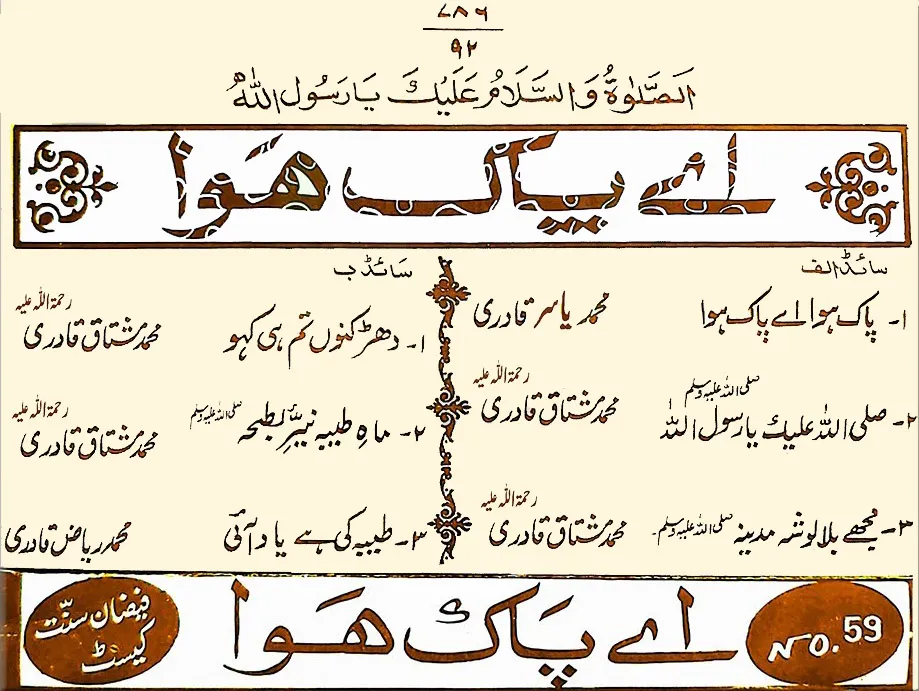 ۷۸۶
۹۲
اَلصَّلٰوةُ وَالسَّلَامُ عَلَيْكَ يَا رَسُولَ اللهﷺ
اے پاک هَوا
سائڈ الف
۱۔ پاک ہوا اے پاک ہوا محمد یاسر قادری
۲۔ صلی اللہ علیك یا رسول اللہ صلی اللہ علیہ وسلم محمد مشتاق قادری رحمۃ اللہ علیہ
۳۔ مجھے بلا لو شہ مدینہ صلی اللہ علیہ وسلم۔ محمد مشتاق قادری رحمۃ اللہ علیہ
سائڈ ب
۱۔ دھڑکنوں تم ہی کہو محمد مشتاق قادری رحمۃ اللہ علیہ
۲۔ ماہِ طیبہ نیرِّ بطحہ صلی اللہ علیہ وسلم محمد مشتاق قادری رحمۃ اللہ علیہ
۳۔ طیبہ کی ہے یاد آئی محمد ریاض قادری
NO. 59
اے پَاک هَوا
فیضان سنّت
کیسٹ